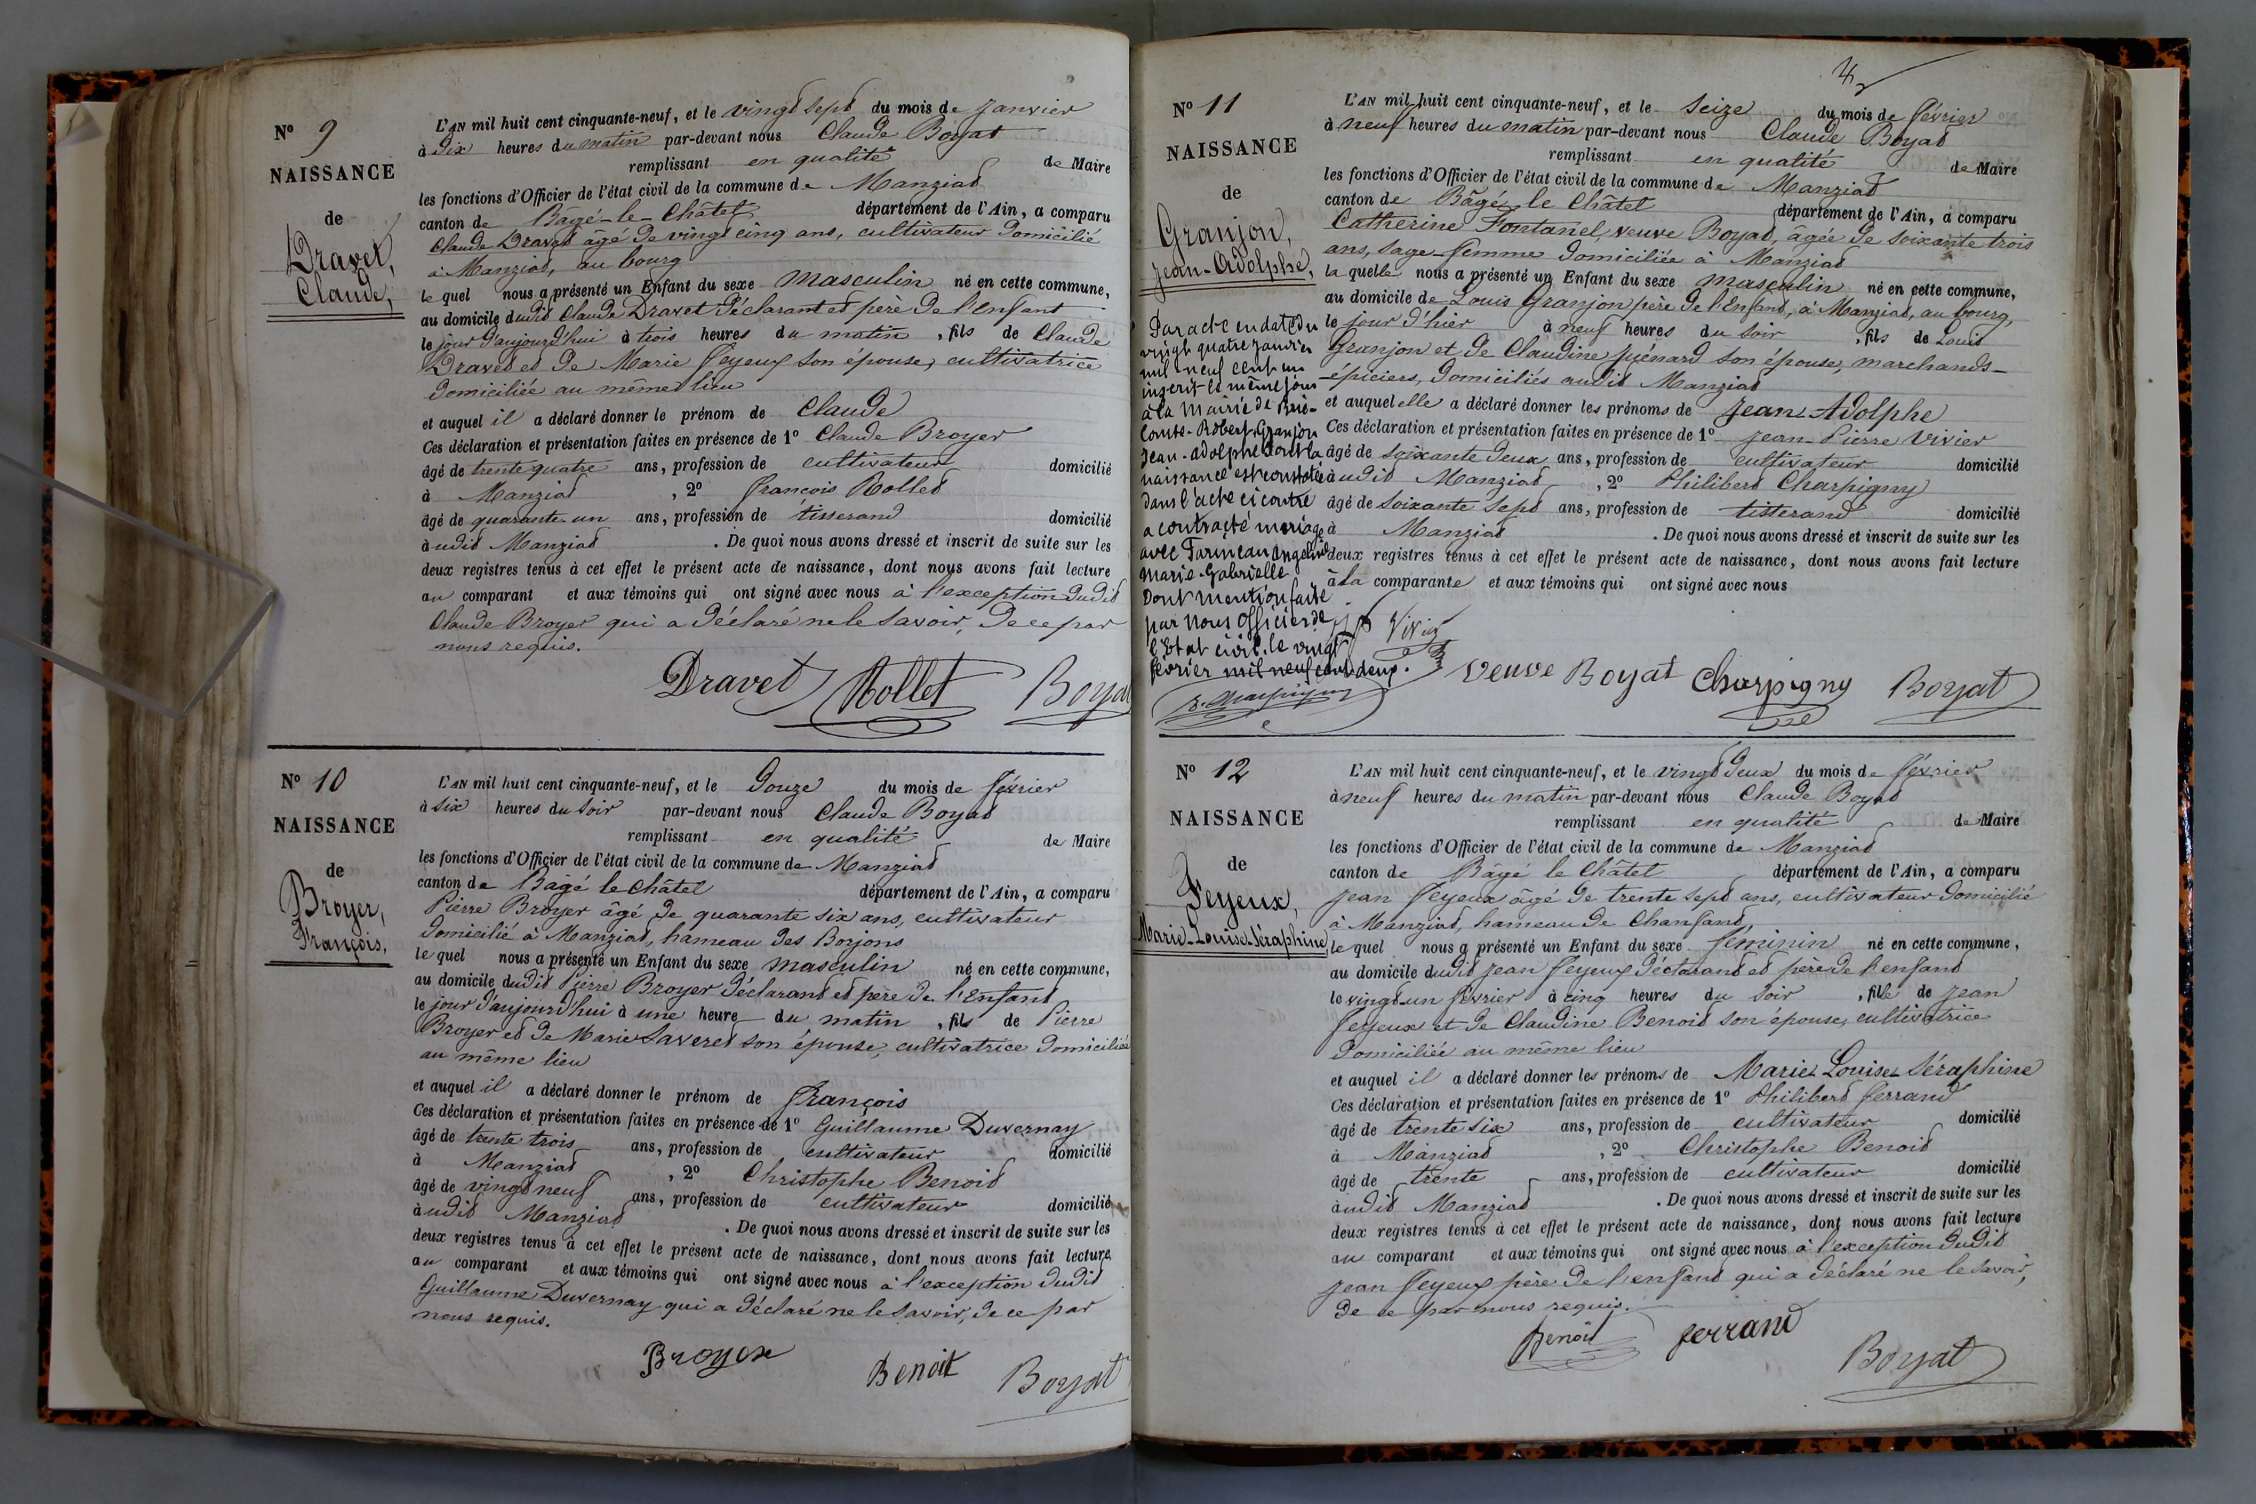 Nº 9
NAISSANCE
de
Dravet,
Claude,
L'AN mil huit cent cinquante-neuf, et le vingt sept du mois de Janvier
à dix heures du matin par-devant nous Claude Boyat
remplissant en qualité de Maire
les fonctions d'Officier de l'état civil de la commune de Manziat
canton de Bâgé-le-Châtel département de l'Ain, a comparu
Claude Dravet âgé de vingt cinq ans, cultivateur domicilié
à Manziat, au bourg
le quel nous a présenté un Enfant du sexe masculin né en cette commune,
au domicile dudit Claude Dravet déclarant et père de l'Enfant
le jour d'aujourd'hui à trois heures du matin, fils de Claude
Dravet et de Marie Feyeux son épouse, cultivatrice
domiciliée au même lieu
et auquel il a déclaré donner le prénom de Claude
Ces déclaration et présentation faites en présence de 1º Claude Broyer
âgé de trente quatre ans, profession de cultivateur domicilié
à Manziat, 2º François Rollet
âgé de quarante-un ans, profession de tisserand domicilié
audit Manziat. De quoi nous avons dressé et inscrit de suite sur les
deux registres tenus à cet effet le présent acte de naissance, dont nous avons fait lecture
au comparant et aux témoins qui ont signé avec nous à l'exception dudit
Claude Broyer qui a déclaré ne le savoir, de ce par
nous requis.
Dravet Rollet Boyat
Nº 10
NAISSANCE
de
Broyer,
François,
L'AN mil huit cent cinquante-neuf, et le douze du mois de février
à six heures du soir par-devant nous Claude Boyat
remplissant en qualité de Maire
les fonctions d'Officier de l'état civil de la commune de Manziat
canton de Bâgé le Châtel département de l'Ain, a comparu
Pierre Broyer âgé de quarante six ans, cultivateur
domicilié à Manziat, hameau des Borjons
le quel nous a présenté un Enfant du sexe masculin né en cette commune,
au domicile dudit Pierre Broyer déclarant et père de l'Enfant
le jour d'aujourd'hui à une heure du matin, fils de Pierre
Broyer et de Marie Laveret son épouse, cultivatrice domiciliée
au même lieu
et auquel il a déclaré donner le prénom de François
Ces déclaration et présentation faites en présence de 1º Guillaume Duvernay
âgé de trente trois ans, profession de cultivateur domicilié
à Manziat, 2º Christophe Benoit
âgé de vingt neuf ans, profession de cultivateur domicilié
audit Manziat. De quoi nous avons dressé et inscrit de suite sur les
deux registres tenus à cet effet le présent acte de naissance, dont nous avons fait lecture
au comparant et aux témoins qui ont signé avec nous à l'exception dudit
Guillaume Duvernay qui a déclaré ne le savoir, de ce par
nous requis.
Broyer Benoit Boyat
Nº 11
NAISSANCE
de
Granjon,
Jean-Adolphe,
Par acte en date du
vingt quatre janvier
mil neuf cent un
inscrit le même jour
à la Mairie de Brie-
Comte-Robert, Granjon
Jean-Adolphe dont la
naissance est constatée
dans l'acte ci contre
a contracté mariage
avec Farineau Angeline
Marie-Gabrielle
Dont mention faite
par nous officier de
l'Etat civil, le vingt
février mil neuf cent deux.
L'AN mil huit cent cinquante-neuf, et le seize du mois de février
à neuf heures du matin par-devant nous Claude Boyat
remplissant en qualité de Maire
les fonctions d'Officier de l'état civil de la commune de Manziat
canton de Bâgé le Châtel département de l'Ain, a comparu
Catherine Fontanel, veuve Boyat, âgée de soixante trois
ans, sage-femme domiciliée à Manziat
la quelle nous a présenté un Enfant du sexe masculin né en cette commune,
au domicile de Louis Granjon père de l'Enfant, à Manziat, au bourg,
le jour d'hier à neuf heures du soir, fils de Louis
Granjon et de Claudine Guénard son épouse, marchands-
épiciers, domiciliés audit Manziat
et auquel elle a déclaré donner les prénoms de Jean-Adolphe
Ces déclaration et présentation faites en présence de 1º Jean-Pierre Vivier
âgé de soixante deux ans, profession de cultivateur domicilié
audit Manziat, 2º Philibert Charpigny
âgé de soixante sept ans, profession de tisserand domicilié
à Manziat. De quoi nous avons dressé et inscrit de suite sur les
deux registres tenus à cet effet le présent acte de naissance, dont nous avons fait lecture
à la comparante et aux témoins qui ont signé avec nous
Vivier veuve Boyat Charpigny Boyat
Nº 12
NAISSANCE
de
Feyeux,
Marie-Louise-Séraphine,
L'AN mil huit cent cinquante-neuf, et le vingt deux du mois de février
à neuf heures du matin par-devant nous Claude Boyat
remplissant en qualité de Maire
les fonctions d'Officier de l'état civil de la commune de Manziat
canton de Bâgé le Châtel département de l'Ain, a comparu
Jean Feyeux âgé de trente sept ans, cultivateur domicilié
à Manziat, hameau de Chanfant,
le quel nous a présenté un Enfant du sexe féminin né en cette commune,
au domicile dudit Jean Feyeux déclarant et père de l'enfant
le vingt-un février à cinq heures du soir, fille de Jean
Feyeux et de Claudine Benoit son épouse, cultivatrice
domiciliée au même lieu
et auquel il a déclaré donner les prénoms de Marie Louise Séraphine
Ces déclaration et présentation faites en présence de 1º Philibert Ferrand
âgé de trente six ans, profession de cultivateur domicilié
à Manziat, 2º Christophe Benoit
âgé de trente ans, profession de cultivateur domicilié
audit Manziat. De quoi nous avons dressé et inscrit de suite sur les
deux registres tenus à cet effet le présent acte de naissance, dont nous avons fait lecture
au comparant et aux témoins qui ont signé avec nous à l'exception dudit
Jean Feyeux père de l'enfant qui a déclaré ne le savoir,
de ce par nous requis.
Benoit ferrand Boyat